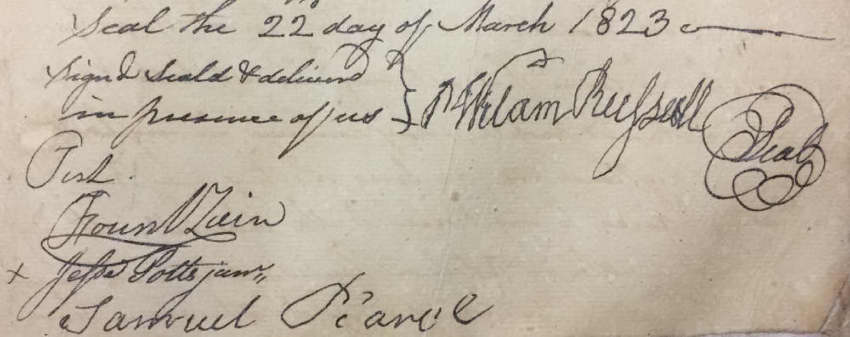 Seal the 22 day of March 1823
Signd Seald & deliverd
in presence of us } William Russell Seal
Test
Jesse Potts junr
Samuel Pearce